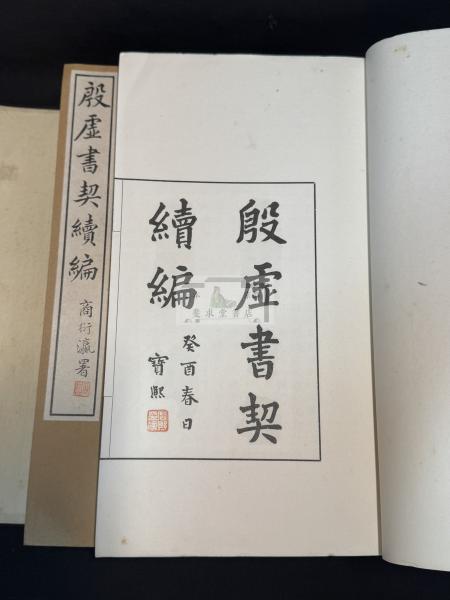 殷虛書契
續編
癸酉春日
寶熙
殷虛書契續編
商衍瀛署